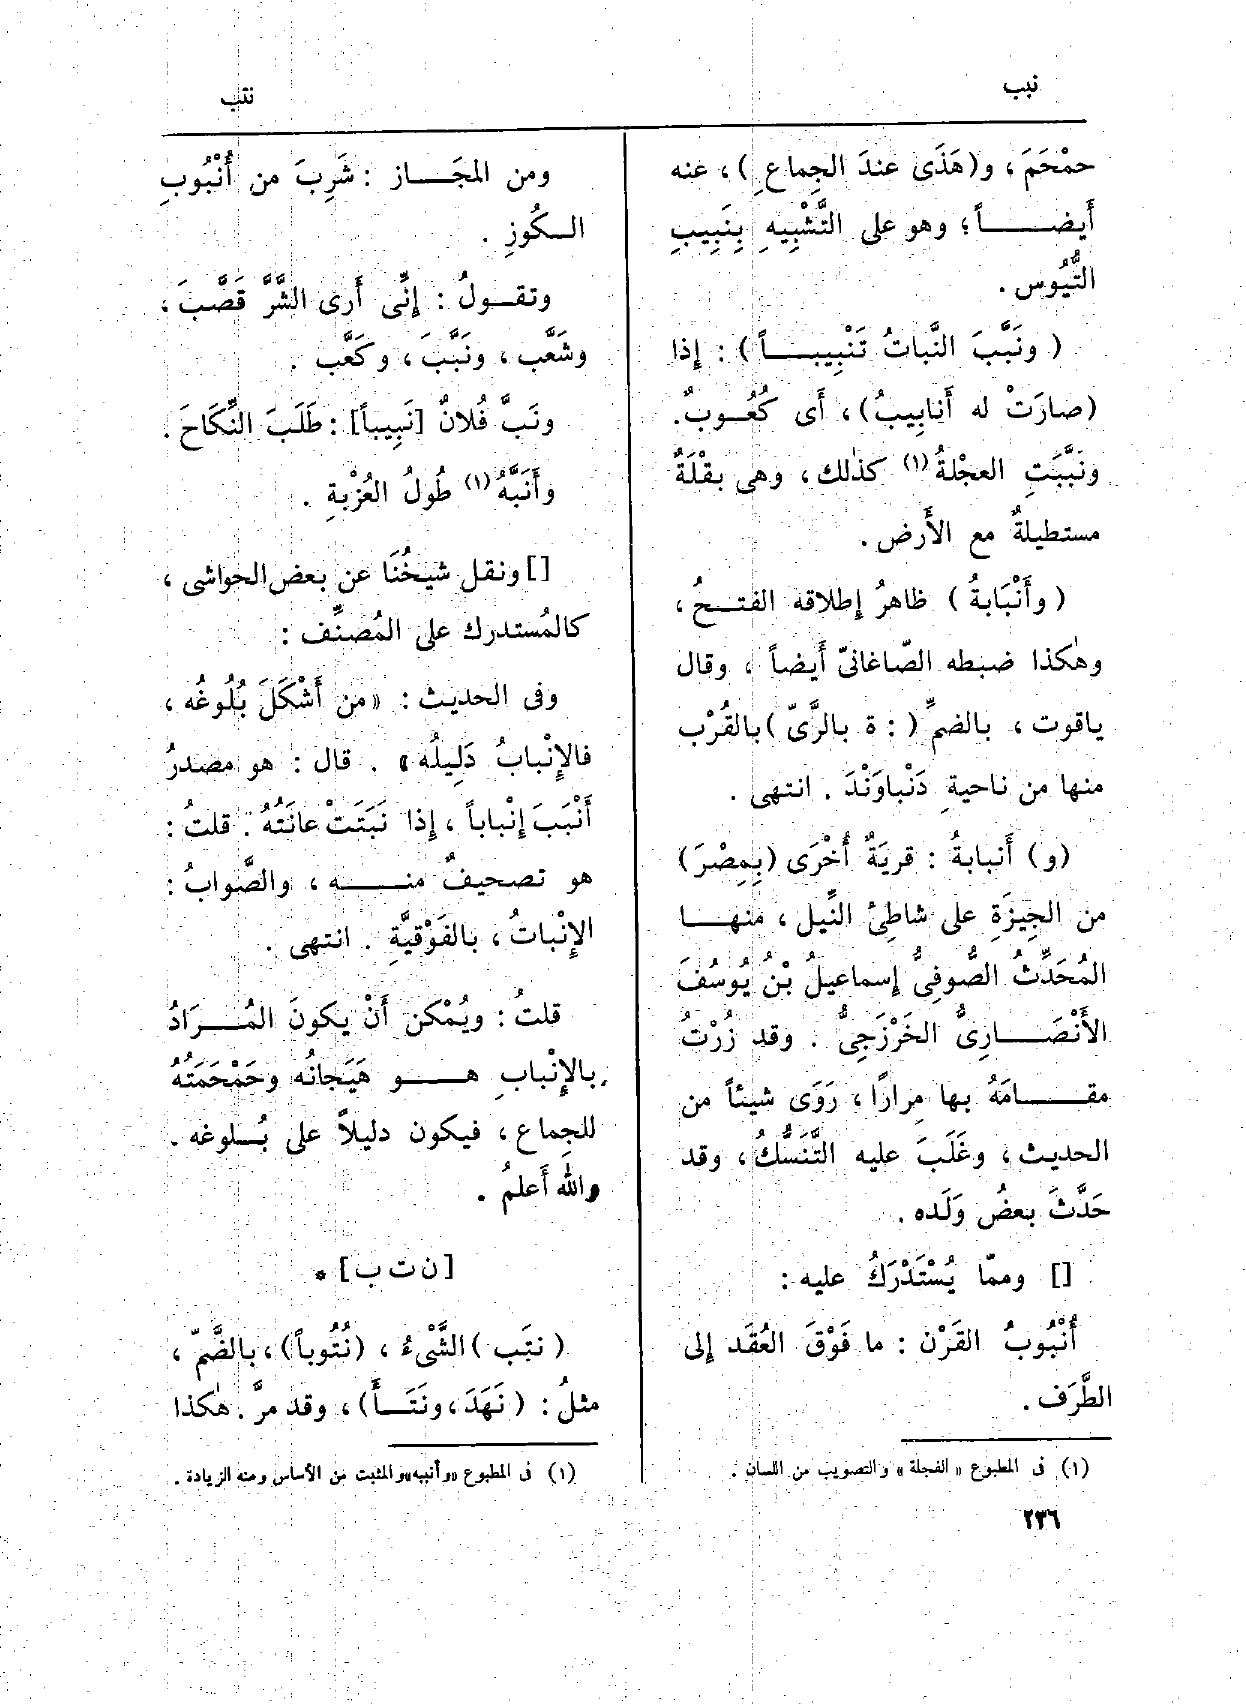 نبب
نتب
حمْحَمَ ، و(هَذَى عندَ الجِماعِ ) ، عنه
أَيضــــاً ؛ وهو على التَّشْبِيهِ بِنَبِيبِ
التُّيُوس .
( ونَبَّبَ النَّباتُ تَنْبِيبــاً ) : إِذا
(صارَتْ له أَنابِيبُ) ، أَى كُعُـوبٌ.
ونَبَّبَتِ العجْلةُ (١) كذٰلك ، وهى بقْلَةٌ
مستطيلةٌ مع الأَرض .
( وأَنْبَابةُ ) ظاهرُ إِطلاقه الفتــحُ ،
وهٰكذا ضبطه الصّاغانىّ أَيضاً ، وقال
ياقوت ، بالضمِّ ( : ة بالرَّىّ ) بالقُرْب
منها من ناحيةِ دَنْباوَنْدَ . انتهى .
(و) أَنبابةُ : قريَةٌ أُخْرَى (بِمِصْرَ)
من الجِيزَةِ على شاطِئِ النِّيل ، منهــا
المُحَدِّثُ الصُّوفِىُّ إِسماعيلُ بْنُ يُوسُفَ
الأَنْصَــارِىُّ الخَزْرَجِىُّ . وقد زُرْتُ
مقــامَهُ بها مِرارًا ، رَوَى شيئاً من
الحديث ، وغَلَبَ عليه التَّنَسُّكُ ، وقد
حَدَّثَ بعضُ وَلَده .
[] وممّا يُسْتَدْرَكُ عليه :
أُنْبُوبُ القَرْن : ما فَوْقَ العُقَد إِلى
الطَّرَف .
(١) فى المطبوع « الفجلة » والتصويب من اللسان .
ومن المجَــاز : شَرِبَ من أُنْبُوبِ
الـكُوزِ .
وتقـولُ : إِنِّى أَرى الشَّرَّ قَصَّبَ ،
وشَعَّب ، ونَبَّبَ ، وكَعَّب .
ونَبَّ فُلانٌ [نَبِيباً] : طَلَبَ النِّكَاحَ .
وأَنَبَّهُ (١) طُولُ العُزْبةِ .
[] ونقل شيخُنَا عن بعض الحواشى ،
كالمُستدرك على المُصنِّف :
وفى الحديث : « من أَشْكَلَ بُلُوغُه ،
فالإِنْبابُ دَلِيلُه » . قال : هو مصدرُ
أَنْبَبَ إِنْباباً ، إِذا نَبَتَتْ عانَتُهُ . قلتُ :
هو تصحيفٌ منــه ، والصَّوابُ :
الإِنْباتُ ، بالفَوْقيَّةِ . انتهى .
قلتُ : ويُمْكن أَنْ يكونَ المُـرَادُ
بالإِنْبابِ هــو هَيَجانُه وحَمْحَمَتُهُ
للجِماع ، فيكون دليلاً على بُـلوغه .
والله أَعلمُ .
[ ن ت ب ] *
( نتَب ) الشَّىْءُ ، (نُتُوباً) ، بالضَّمّ ،
مثلُ : ( نَهَدَ ، ونَتَــأَ) ، وقد مرَّ . هٰكذا
(١) فى المطبوع «وأنبيه» والمثبت من الأساس ومنه الزيادة .
٢٣٦